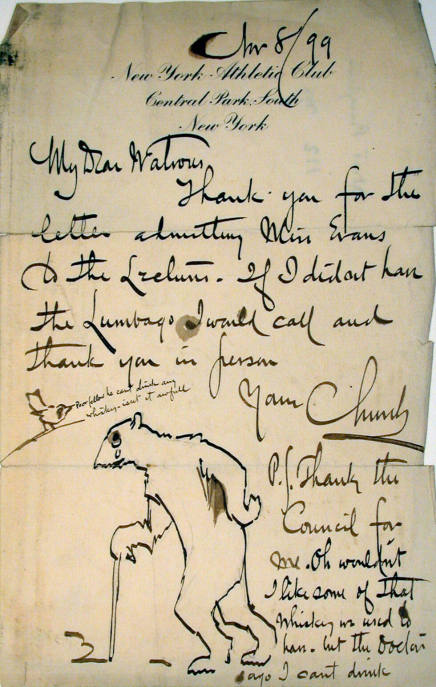 Nov 8/99
New York Athletic Club
Central Park South
New York
My Dear Watrous
Thank you for the
letter admitting Miss Evans
to the Lectures. If I didnt have
the Lumbago I would call and
thank you in person
Yours Church
Poor fellow he cant drink any
whiskey - isnt it awful
P.S. Thank the
Council for
me. Oh wouldn't
I like some of that
Whiskey we used to
have. but the Doctor
says I cant drink